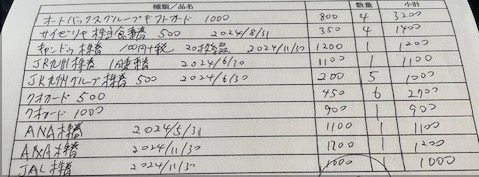 種類／品名 数量 小計
オートバックスグループギフトカード 1000 800 4 3200
サイゼリヤ 株主食事券 500 2024/8/31 350 4 1400
キャンドゥ 株券 100円+税 20枚 2024/11/30 1200 1 1200
JR九州株券 1日乗券 2024/6/30 1100 1 1100
JR九州グループ株券 500 2024/6/30 200 5 1000
クオカード 500 450 6 2700
クオカード 1000 900 1 900
ANA株券 2024/5/31 1100 1 1100
ANA株券 2024/11/30 1200 1 1200
JAL株券 2024/11/30 1000 1 1000